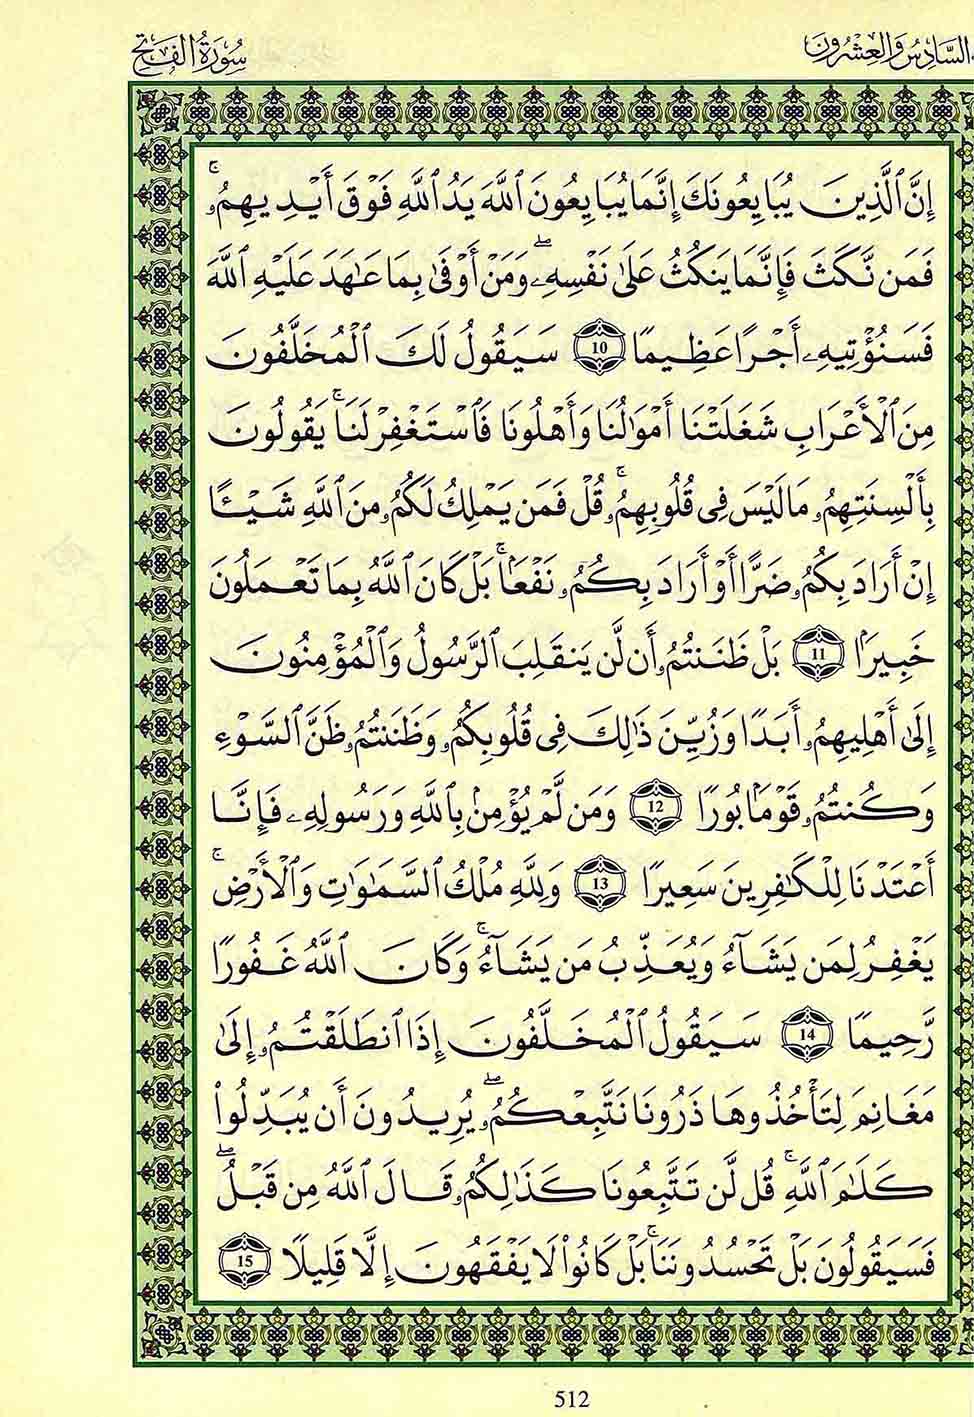 السَّادِسُ وَالْعِشْرُونَ
سُورَةُ الْفَتْحِ
إِنَّ ٱلَّذِينَ يُبَايِعُونَكَ إِنَّمَا يُبَايِعُونَ ٱللَّهَ يَدُ ٱللَّهِ فَوْقَ أَيْدِيهِمُۥۚ
فَمَن نَّكَثَ فَإِنَّمَا يَنكُثُ عَلَىٰ نَفْسِهِۦۖ وَمَنْ أَوْفَىٰ بِمَا عَٰهَدَ عَلَيْهِ ٱللَّهَ
فَسَنُؤْتِيهِۦ أَجْرًا عَظِيمًا 10 سَيَقُولُ لَكَ ٱلْمُخَلَّفُونَ
مِنَ ٱلْأَعْرَابِ شَغَلَتْنَا أَمْوَٰلُنَا وَأَهْلُونَا فَٱسْتَغْفِرْ لَنَاۚ يَقُولُونَ
بِأَلْسِنَتِهِمُۥ مَا لَيْسَ فِى قُلُوبِهِمُۥۚ قُلْ فَمَن يَمْلِكُ لَكُمُۥ مِنَ ٱللَّهِ شَيْـًٔا
إِنْ أَرَادَ بِكُمُۥ ضَرًّا أَوْ أَرَادَ بِكُمُۥ نَفْعَۢاۚ بَلْ كَانَ ٱللَّهُ بِمَا تَعْمَلُونَ
خَبِيرَۢا 11 بَلْ ظَنَنتُمُۥ أَن لَّن يَنقَلِبَ ٱلرَّسُولُ وَٱلْمُؤْمِنُونَ
إِلَىٰ أَهْلِيهِمُۥ أَبَدًا وَزُيِّنَ ذَٰلِكَ فِى قُلُوبِكُمُۥ وَظَنَنتُمُۥ ظَنَّ ٱلسَّوْءِ
وَكُنتُمُۥ قَوْمَۢا بُورًا 12 وَمَن لَّمْ يُؤْمِنۢ بِٱللَّهِ وَرَسُولِهِۦ فَإِنَّا
أَعْتَدْنَا لِلْكَٰفِرِينَ سَعِيرًا 13 وَلِلَّهِ مُلْكُ ٱلسَّمَٰوَٰتِ وَٱلْأَرْضِۚ
يَغْفِرُ لِمَن يَشَآءُ وَيُعَذِّبُ مَن يَشَآءُۚ وَكَانَ ٱللَّهُ غَفُورًا
رَّحِيمًا 14 سَيَقُولُ ٱلْمُخَلَّفُونَ إِذَا ٱنطَلَقْتُمُۥ إِلَىٰ
مَغَانِمَ لِتَأْخُذُوهَا ذَرُونَا نَتَّبِعْكُمُۥۖ يُرِيدُونَ أَن يُبَدِّلُواْ
كَلَٰمَ ٱللَّهِۚ قُل لَّن تَتَّبِعُونَا كَذَٰلِكُمُۥ قَالَ ٱللَّهُ مِن قَبْلُۖ
فَسَيَقُولُونَ بَلْ تَحْسُدُونَنَاۚ بَلْ كَانُواْ لَا يَفْقَهُونَ إِلَّا قَلِيلًا 15
512